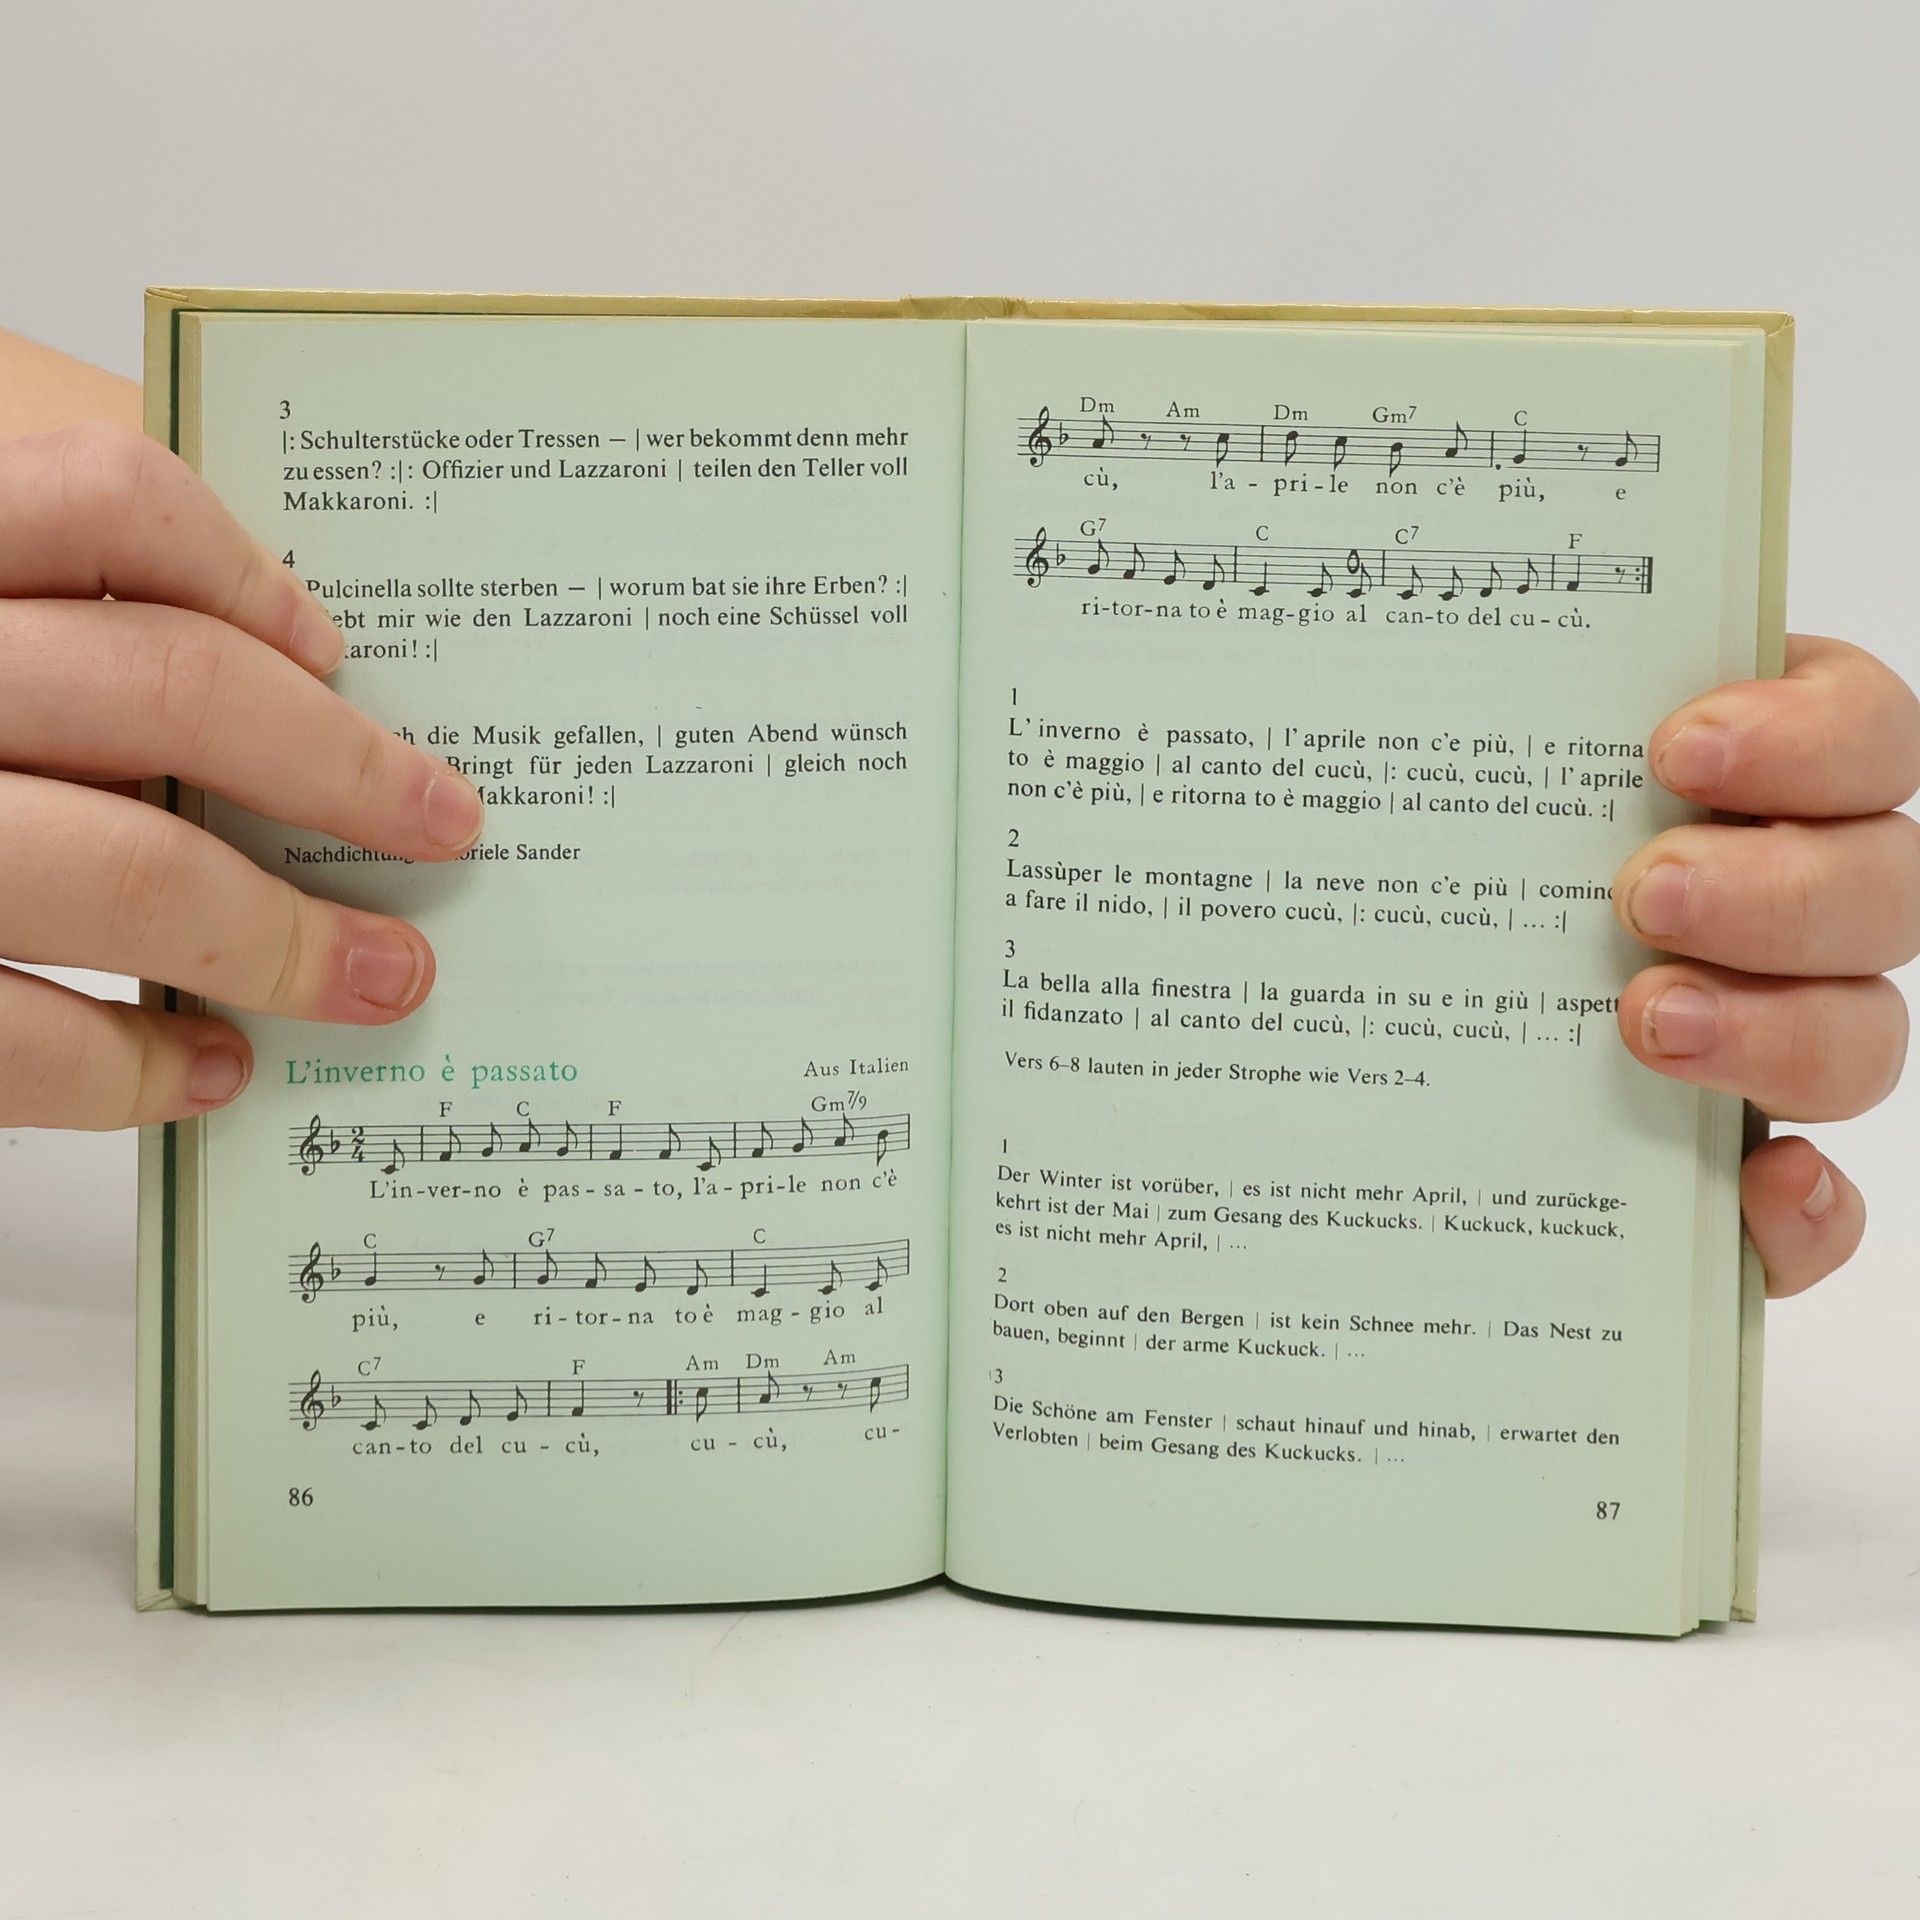 3
|: Schulterstücke oder Tressen — | wer bekommt denn mehr
zu essen? :|: Offizier und Lazzaroni | teilen den Teller voll
Makkaroni. :|
4
Pulcinella sollte sterben — | worum bat sie ihre Erben? :|
mir wie den Lazzaroni | noch eine Schüssel voll
die Musik gefallen, | guten Abend wünsch
Bringt für jeden Lazzaroni | gleich noch
Makkaroni! :|
Sander
L'inverno è passato
Aus Italien
F C F Gm7/9
2
4
L'in-ver-no è pas-sa-to, l'a-pri-le non c'è
C G7 C
più, e ri-tor-na to è mag-gio al
C7 F Am Dm Am
can-to del cu-cù, cu-cù, cu-
86
Dm Am Dm Gm7 C
cù, l'a-pri-le non c'è più, e
G7 C C7 F
ri-tor-na to è mag-gio al can-to del cu-cù.
1
L' inverno è passato, | l' aprile non c'e più, | e ritorna
to è maggio | al canto del cucù, |: cucù, cucù, | l' aprile
non c'è più, | e ritorna to è maggio | al canto del cucù. :|
2
Lassùper le montagne | la neve non c'e più |
a fare il nido, | il povero cucù, |: cucù, cucù, | ... :|
3
La bella alla finestra | la guarda in su e in giù |
il fidanzato | al canto del cucù, |: cucù, cucù, | ... :|
Vers 6–8 lauten in jeder Strophe wie Vers 2–4.
1
Der Winter ist vorüber, | es ist nicht mehr April, | und zurückge-
kehrt ist der Mai | zum Gesang des Kuckucks. | Kuckuck, kuckuck,
es ist nicht mehr April, | ...
2
Dort oben auf den Bergen | ist kein Schnee mehr. | Das Nest zu
bauen, beginnt | der arme Kuckuck. | ...
3
Die Schöne am Fenster | schaut hinauf und hinab, | erwartet den
Verlobten | beim Gesang des Kuckucks. | ...
87